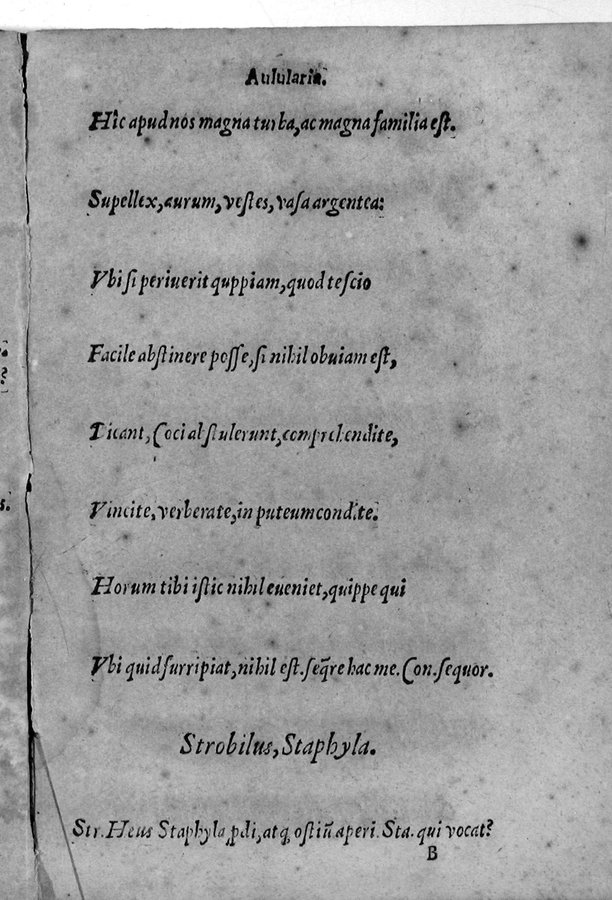 Aulularia.
Hic apud nos magna turba, ac magna familia est.
Supellex, aurum, vestes, vasa argentea:
Vbi si periuerit quppiam, quod te scio
Facile abstinere posse, si nihil obuiam est,
Dicant, Coci abstulerunt, comprehendite,
Vincite, verberate, in puteum condite.
Horum tibi istic nihil eueniet, quippe qui
Vbi quid surripiat, nihil est. seq̃re hac me. Con. sequor.
Strobilus, Staphyla.
Str. Heus Staphyla ꝓdi, atq; ostiũ aperi. Sta. qui vocat?
B
?
s.